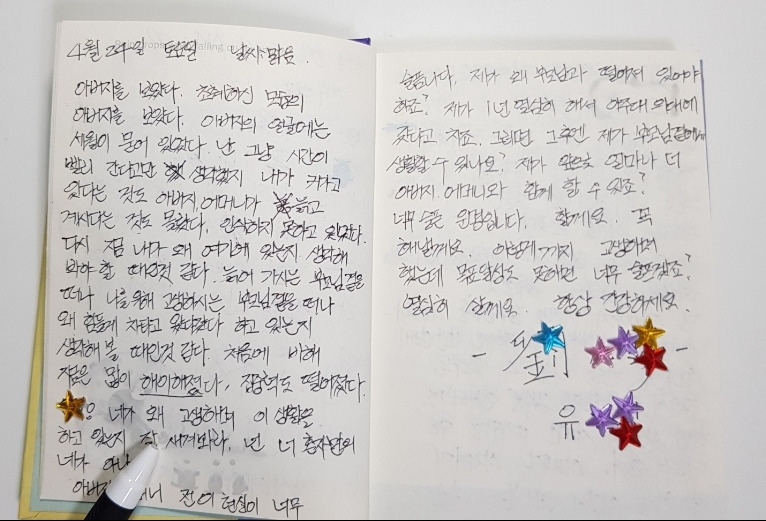 4월 24일 토요일 날씨:맑음.
아버지를 보았다. 초췌하신 모습의
아버지를 보았다. 아버지의 얼굴에는
세월이 묻어 있었다. 난 그냥 시간이
빨리 간다고만 생각했지 내가 커가고
있다는 것도 아버지,어머니가 늙고
계시다는 것도 몰랐다. 인식하지 못하고 있었다.
다시 점 내가 왜 여기에 있는지 생각해
봐야 할 때인것 같다. 늙어 가시는 부모님곁을
떠나 나를위해 고생하시는 부모님곁을 떠나
왜 힘들게 차타고 왔다갔다 하고 있는지
생각해 볼 때인것 같다. 처음에 비해
지금은 많이 해이해졌다, 집중력도 떨어졌다.
네가 왜 고생하며 이 생활을
하고 있는지 새겨봐라. 넌 너 혼자만의
네가 아냐
아버지 전 이 현실이 너무
슬픕니다. 제가 왜 부모님과 떨어져 있어야
하죠? 제가 1년 열심히 해서 아주대 의대에
갔다고 치죠. 그러면 그후엔 제가 부모님곁에서
생활할 수 있나요? 제가 앞으로 얼마나 더
아버지.어머니와 함께 할 수 있죠?
너무 슬픈 운명입니다. 할게요. 꼭
해낼게요. 이렇게까지 고생해서
했는데 목표달성도 못하면 너무 슬프겠죠?
열심히 살게요. 항상 건강하세요.
- 劉 -
유